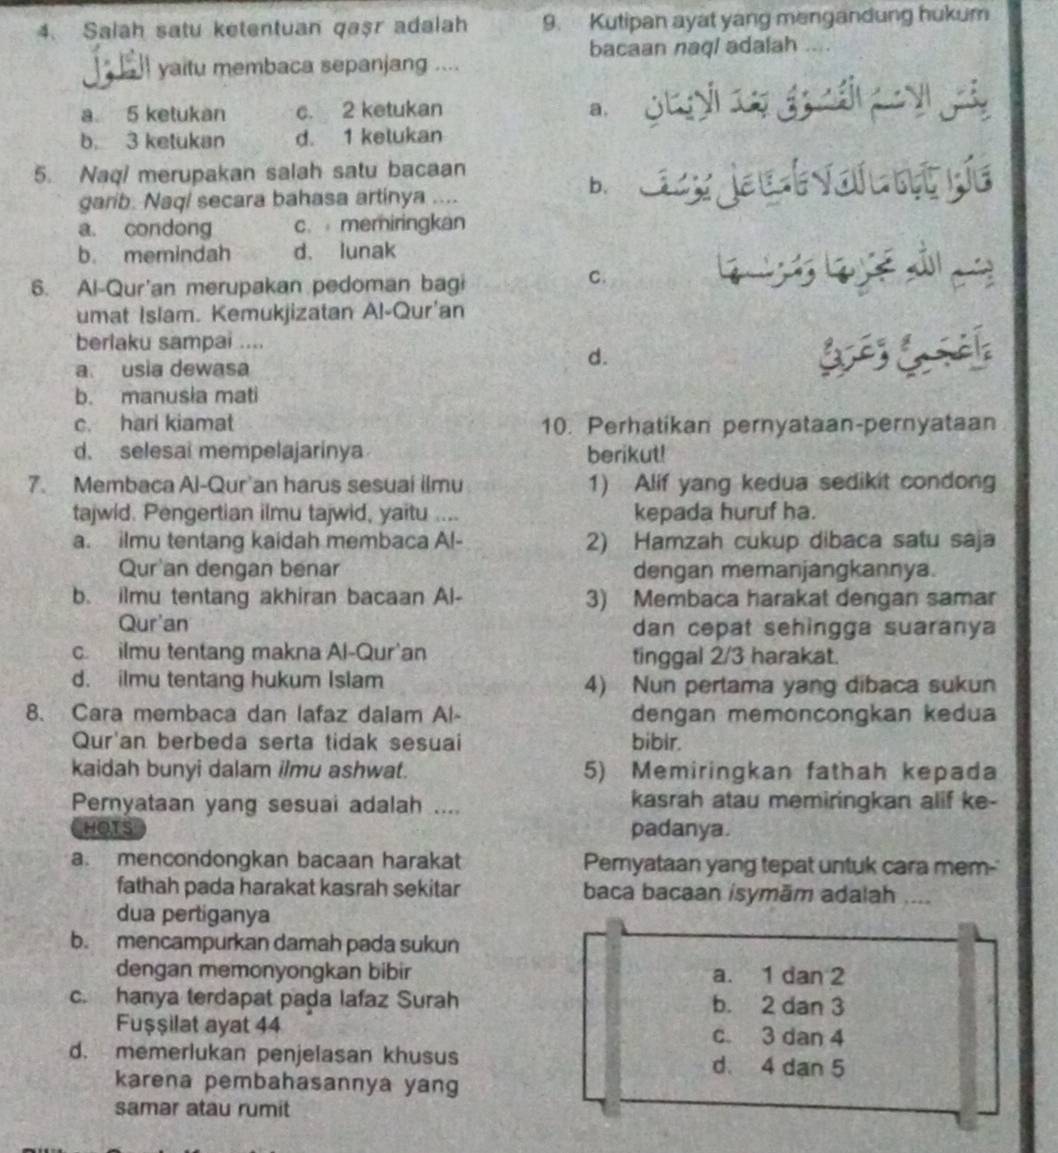 4. Salah satu ketentuan qaṣr adalah
الطُّوْلُ yaitu membaca sepanjang ....
a. 5 ketukan c. 2 ketukan
b. 3 ketukan d. 1 ketukan
5. Naql merupakan salah satu bacaan
garib. Naql secara bahasa artinya ....
a. condong c. memiringkan
b. memindah d. lunak
6. Al-Qur'an merupakan pedoman bagi
umat Islam. Kemukjizatan Al-Qur'an
berlaku sampai ....
a. usia dewasa
b. manusia mati
c. hari kiamat
d. selesai mempelajarinya
7. Membaca Al-Qur'an harus sesuai ilmu
tajwid. Pengertian ilmu tajwid, yaitu ....
a. ilmu tentang kaidah membaca Al-
Qur'an dengan benar
b. ilmu tentang akhiran bacaan Al-
Qur'an
c. ilmu tentang makna Al-Qur'an
d. ilmu tentang hukum Islam
8. Cara membaca dan lafaz dalam Al-
Qur'an berbeda serta tidak sesuai
kaidah bunyi dalam ilmu ashwat.
Pernyataan yang sesuai adalah ....
HOTS
a. mencondongkan bacaan harakat
fathah pada harakat kasrah sekitar
dua pertiganya
b. mencampurkan damah pada sukun
dengan memonyongkan bibir
c. hanya terdapat pada lafaz Surah
Fuṣṣilat ayat 44
d. memerlukan penjelasan khusus
karena pembahasannya yang
samar atau rumit
9. Kutipan ayat yang mengandung hukum
bacaan naql adalah ....
a. بِئْسَ الِاسْمُ الْفُسُوْقُ بَعْدَ الْاِيْمَانِ
b. قَالُوْا يٰٓاَبَانَا مَا لَكَ لَا تَأْمَنَّا عَلٰى يُوْسُفَ
c. بِسْمِ اللهِ مَجْرٰىهَا وَمُرْسٰىهَا
d. ءَاَعْجَمِيٌّ وَّعَرَبِيٌّ
10. Perhatikan pernyataan-pernyataan
berikut!
1) Alif yang kedua sedikit condong
kepada huruf ha.
2) Hamzah cukup dibaca satu saja
dengan memanjangkannya.
3) Membaca harakat dengan samar
dan cepat sehingga suaranya
tinggal 2/3 harakat.
4) Nun pertama yang dibaca sukun
dengan memoncongkan kedua
bibir.
5) Memiringkan fathah kepada
kasrah atau memiringkan alif ke-
padanya.
Pernyataan yang tepat untuk cara mem-
baca bacaan isymām adalah ....
a. 1 dan 2
b. 2 dan 3
c. 3 dan 4
d. 4 dan 5